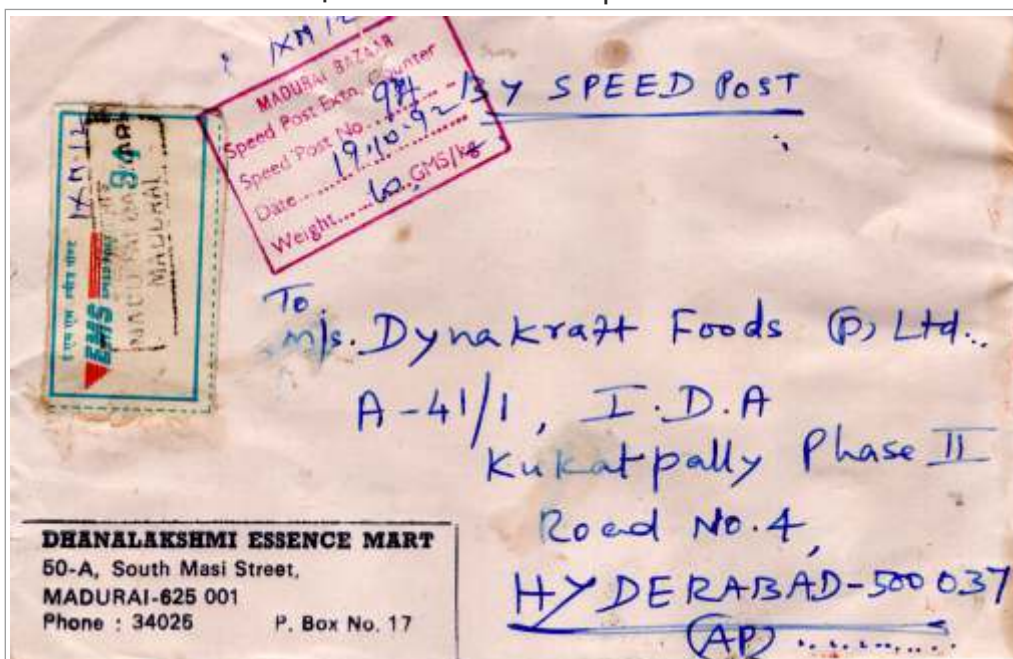 1XM12
MADURAI BAZAAR
Speed Post Extn. Counter
Speed Post No. 94
Date 19.10.92
Weight 60 GMS/kg
By SPEED POST
EMS SPEED POST
MADURAI
To
M/s. Dynakraft Foods (P) Ltd..
A-41/1, I.D.A
Kukatpally Phase II
Road No. 4,
HYDERABAD-500 037
(AP)
DHANALAKSHMI ESSENCE MART
50-A, South Masi Street,
MADURAI-625 001
Phone : 34025 P. Box No. 17